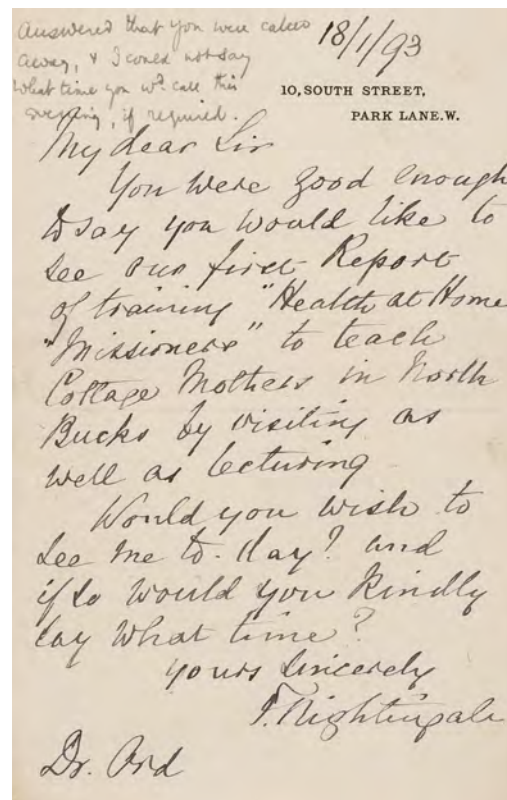 Answered that you were called
away, & I could not say
what time you wd. call this
evening, if required.
18/1/93
10, SOUTH STREET,
PARK LANE. W.
My dear Sir
You were good enough
to say you would like to
see our first Report
of training "Health at Home
"Missioners" to teach
Cottage Mothers in North
Bucks by visiting as
well as lecturing
Would you wish to
see me to-day? and
if so would you kindly
say what time?
yours sincerely
F. Nightingale
Dr. Ord